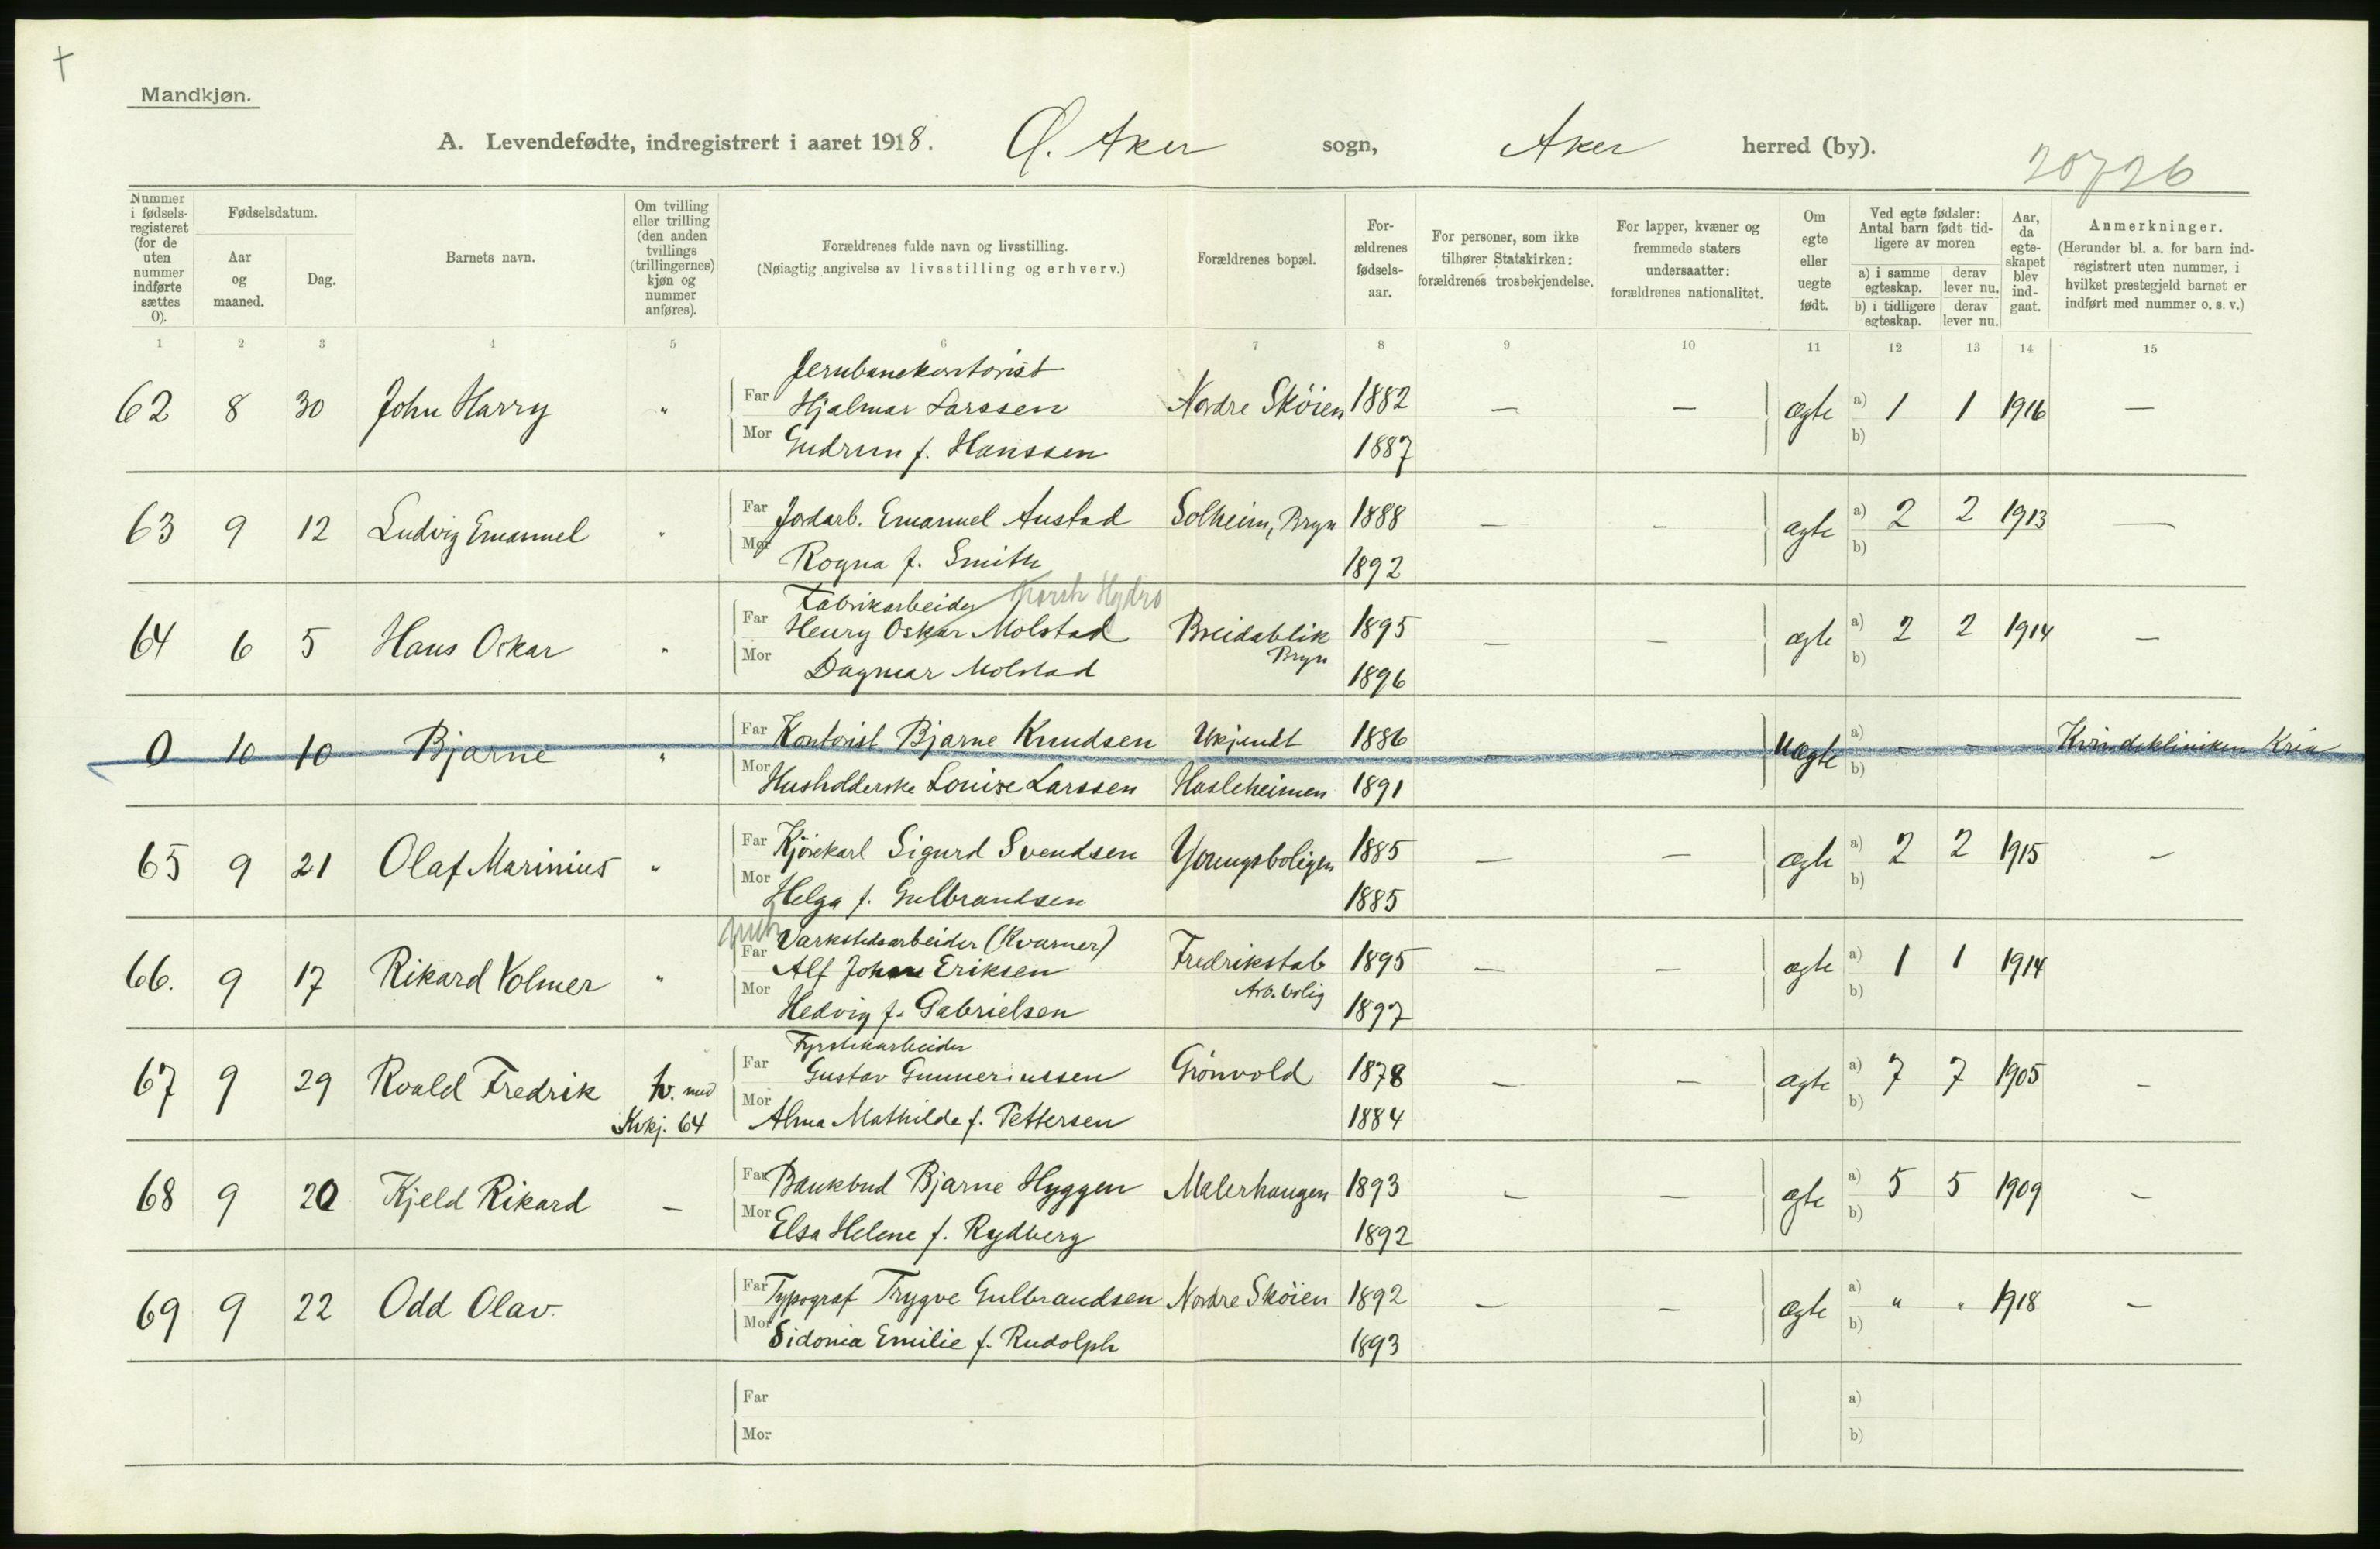 Mandkjøn.
A. Levendefødte, indregistrert i aaret 1918. Ø. Aker sogn, Aker herred (by).
20726
Nummer i fødselsregisteret (for de uten nummer indførte sættes 0).
Fødselsdatum.
Aar og maaned.
Dag.
Barnets navn.
Om tvilling eller trilling (den anden tvillings (trillingernes) kjøn og nummer anføres).
Forældrenes fulde navn og livsstilling.
(Nøiagtig angivelse av livsstilling og erhverv.)
Forældrenes bopæl.
Forældrenes fødselsaar.
For personer, som ikke tilhører Statskirken: forældrenes trosbekjendelse.
For lapper, kvæner og fremmede staters undersaatter: forældrenes nationalitet.
Om egte eller uegte født.
Ved egte fødsler: Antal barn født tidligere av moren
a) i samme egteskap. derav lever nu.
b) i tidligere egteskap. derav lever nu.
Aar, da egteskapet blev indgaat.
Anmerkninger.
(Herunder bl. a. for barn indregistrert uten nummer, i hvilket prestegjeld barnet er indført med nummer o. s. v.)
1 2 3 4 5 6 7 8 9 10 11 12 13 14 15
Jernbanekontorist
62 8 30 John Harry " Far Hjalmar Larssen Nordre Sköien 1882 — — ægte a) 1 1 1916 —
Mor Gudrun f. Hanssen 1887 b)
63 9 12 Ludvig Emanuel " Far Jordarb. Emanuel Austad Solheim, Bryn 1888 — — ægte a) 2 2 1913 —
Mor Rogna f. Smith 1892 b)
Fabrikarbeider Norsk Hydro
64 6 5 Hans Oskar " Far Henry Oskar Molstad Breidablik Bryn 1895 — — ægte a) 2 2 1914 —
Mor Dagmar Molstad 1896 b)
0 10 10 Bjarne " Far Kontorist Bjarne Knudsen Ukjendt 1886 — — Uægte a) — — Kvindekliniken Kria
Mor Husholderske Louise Larssen Hasleheimen 1891 b)
65 9 21 Olaf Marinius " Far Kjörekarl Sigurd Svendsen Youngsboligen 1885 — — ægte a) 2 2 1915 —
Mor Helga f. Gulbrandsen 1885 b)
Værkstedsarbeider (Kværner)
66. 9 17 Rikard Volmer " Far Alf Johan Eriksen Fredrikstab Arb.bolig 1895 — — ægte a) 1 1 1914
Mor Hedvig f. Gabrielsen 1897 b)
Fyrstikarbeider
67 9 29 Roald Fredrik tv. med Kvkj. 64 Far Gustav Gunneriussen Grönvold 1878 — — ægte a) 7 7 1905 —
Mor Alma Mathilde f. Pettersen 1884 b)
68 9 20 Kjeld Rikard — Far Bankbud Bjarne Hyggen Malerhaugen 1893 — — ægte a) 5 5 1909 —
Mor Elsa Helene f. Rydberg 1892 b)
69 9 22 Odd Olav. Far Typograf Trygve Gulbrandsen Nordre Sköien 1892 — — ægte a) " " 1918 —
Mor Sidonia Emilie f. Rudolph 1893 b)
Far a)
Mor b)